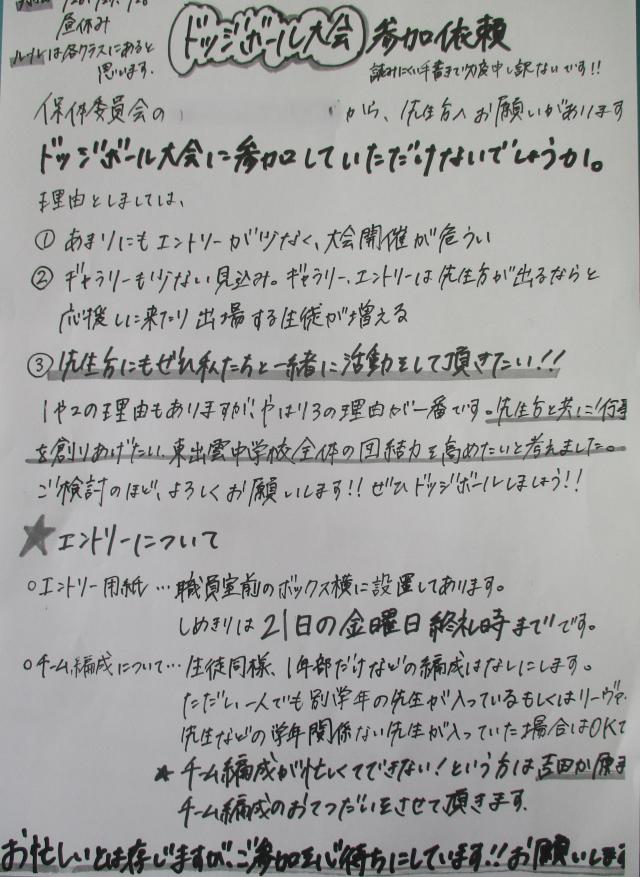 昼休み
ルールは各クラスにあると
思います。
ドッジボール大会 参加依頼
読みにくい手書きで大変申し訳ないです!!
保体委員会の から、先生方へお願いがあります
ドッジボール大会に参加していただけないでしょうか。
理由としましては、
① あまりにもエントリーが少なく、大会開催が危うい
② ギャラリーも少ない見込み。ギャラリー、エントリーは先生方が出るならと
応援しに来たり出場する生徒が増える
③ 先生方にもぜひ私たちと一緒に活動をして頂きたい!!
1や2の理由もありますが、やはり3の理由が一番です。先生方と共に行事
を創りあげたい、東出雲中学校全体の団結力を高めたいと考えました。
ご検討のほど、よろしくお願いします!! ぜひドッジボールしましょう!!
★エントリーについて
○エントリー用紙…職員室前のボックス横に設置してあります。
しめきりは21日の金曜日終礼時までです。
○チーム編成について…生徒同様、1年部だけなどの編成はなしにします。
ただし一人でも別学年の先生が入っているもしくはリーヴァ
先生などの学年関係ない先生が入っていた場合はOKで
★チーム編成が忙しくてできない!という方は吉田か原ま
チーム編成のおてつだいをさせて頂きます。
お忙しいとは存じますが、ご参加を心待ちにしています!!お願いします